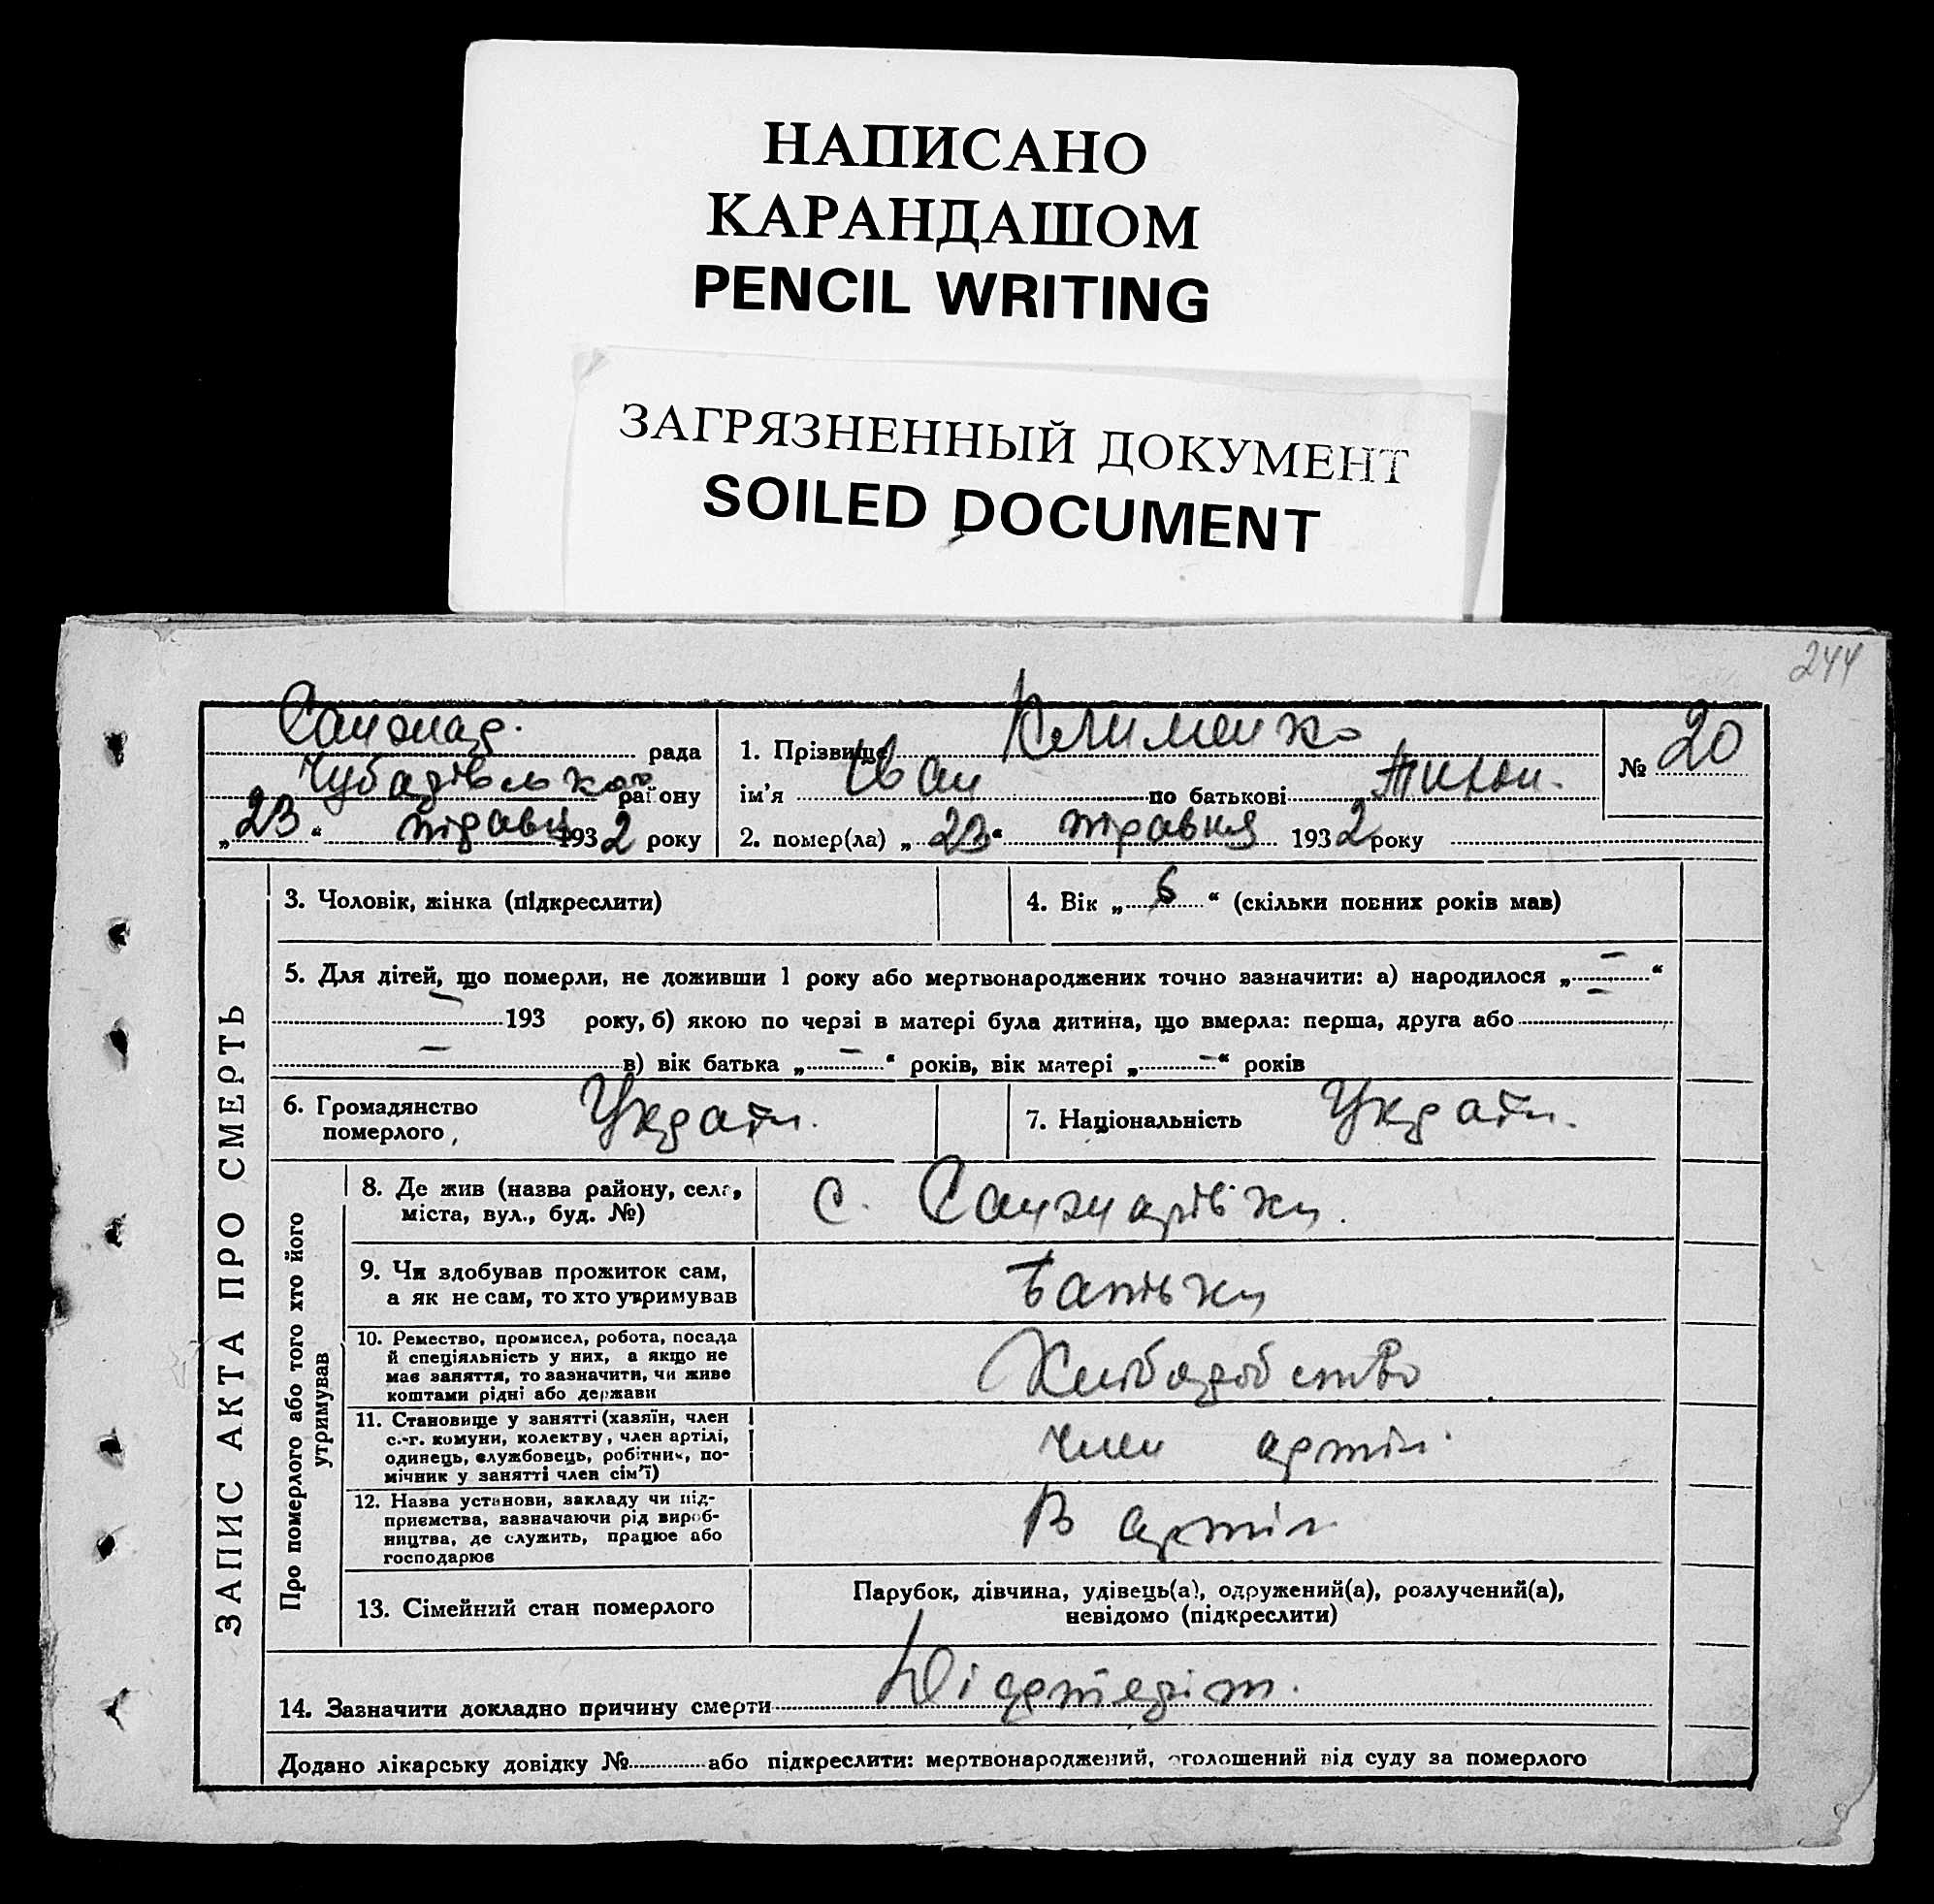 НАПИСАНО
КАРАНДАШОМ
PENCIL WRITING
ЗАГРЯЗНЕННЫЙ ДОКУМЕНТ
SOILED DOCUMENT
244
ЗАПИС АКТА ПРО СМЕРТЬ
Санжар. рада
району
„23“ травня 1932 року
1. Прізвище Клименко
ім'я Іван по батькові Тихон.
2. помер(ла) „23“ травня 1932 року
№ 20
3. Чоловік, жінка (підкреслити)
4. Вік „6“ (скільки повних років мав)
5. Для дітей, що померли, не доживши 1 року або мертвонароджених точно зазначити: а) народилося „–“
– 193 року, б) якою по черзі в матері була дитина, що вмерла: перша, друга або –
– в) вік батька „–“ років, вік матері „–“ років
6. Громадянство
померлого
Украін.
7. Національність Украін.
Про померлого або того хто його
утримував
8. Де жив (назва району, села,
міста, вул., буд. №)
с. Санжарівка.
9. Чи здобував прожиток сам,
а як не сам, то хто утримував
Батьки
10. Ремество, промисел, робота, посада
й спеціяльність у них, а якщо не
має заняття, то зазначити, чи живе
коштами рідні або держави
Хлібороб
11. Становище у занятті (хазяїн, член
с.-г. комуни, колектву, член артілі,
одинець, службовець, робітник, по-
мічник у занятті член сім'ї)
член артіл.
12. Назва установи, закладу чи під-
приємства, зазначаючи рід вироб-
ництва, де служить, працює або
господарює
В артіл
13. Сімейний стан померлого
Парубок, дівчина, удівець(а), одружений(а), розлучений(а),
невідомо (підкреслити)
14. Зазначити докладно причину смерти
Додано лікарську довідку № або підкреслити: мертвонароджений, оголошений від суду за померлого